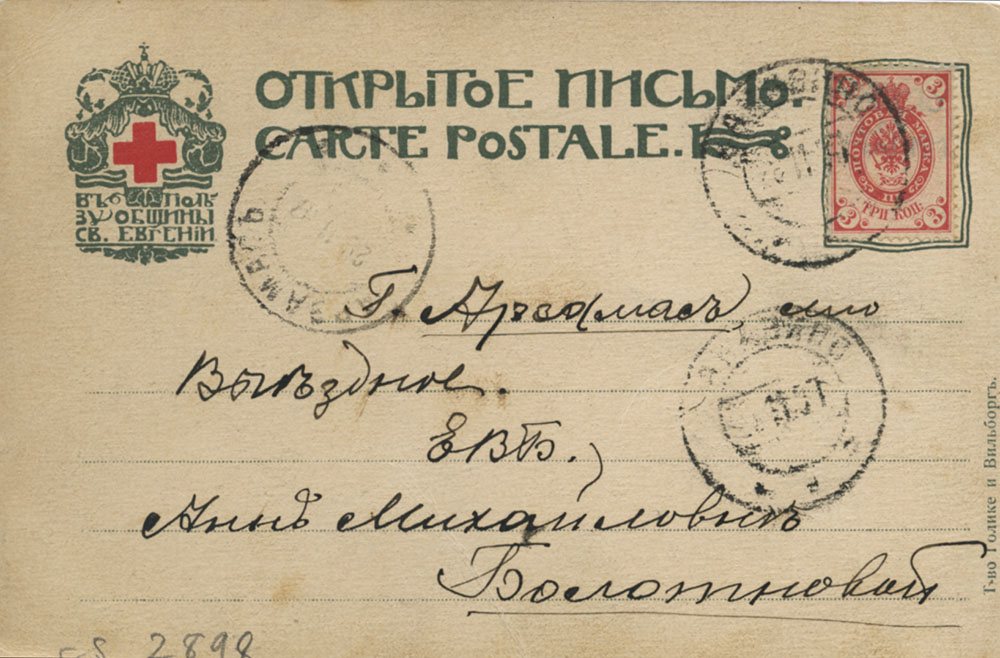 ОТКРЫТОЕ ПИСЬМО.
CARTE POSTALE.
ВЪ ПОЛЬ
ЗУ ОБЩИНЫ
СВ. ЕВГЕНІИ
3 3
ПОЧТОВАЯ МАРКА
ТРИ КОП.
3 3
Г. Арзамасъ,
Выѣздное.
ЕВБ.
Аннѣ Михайловнѣ
Болотновой
Т-во Голике и Вильборгъ.
2898